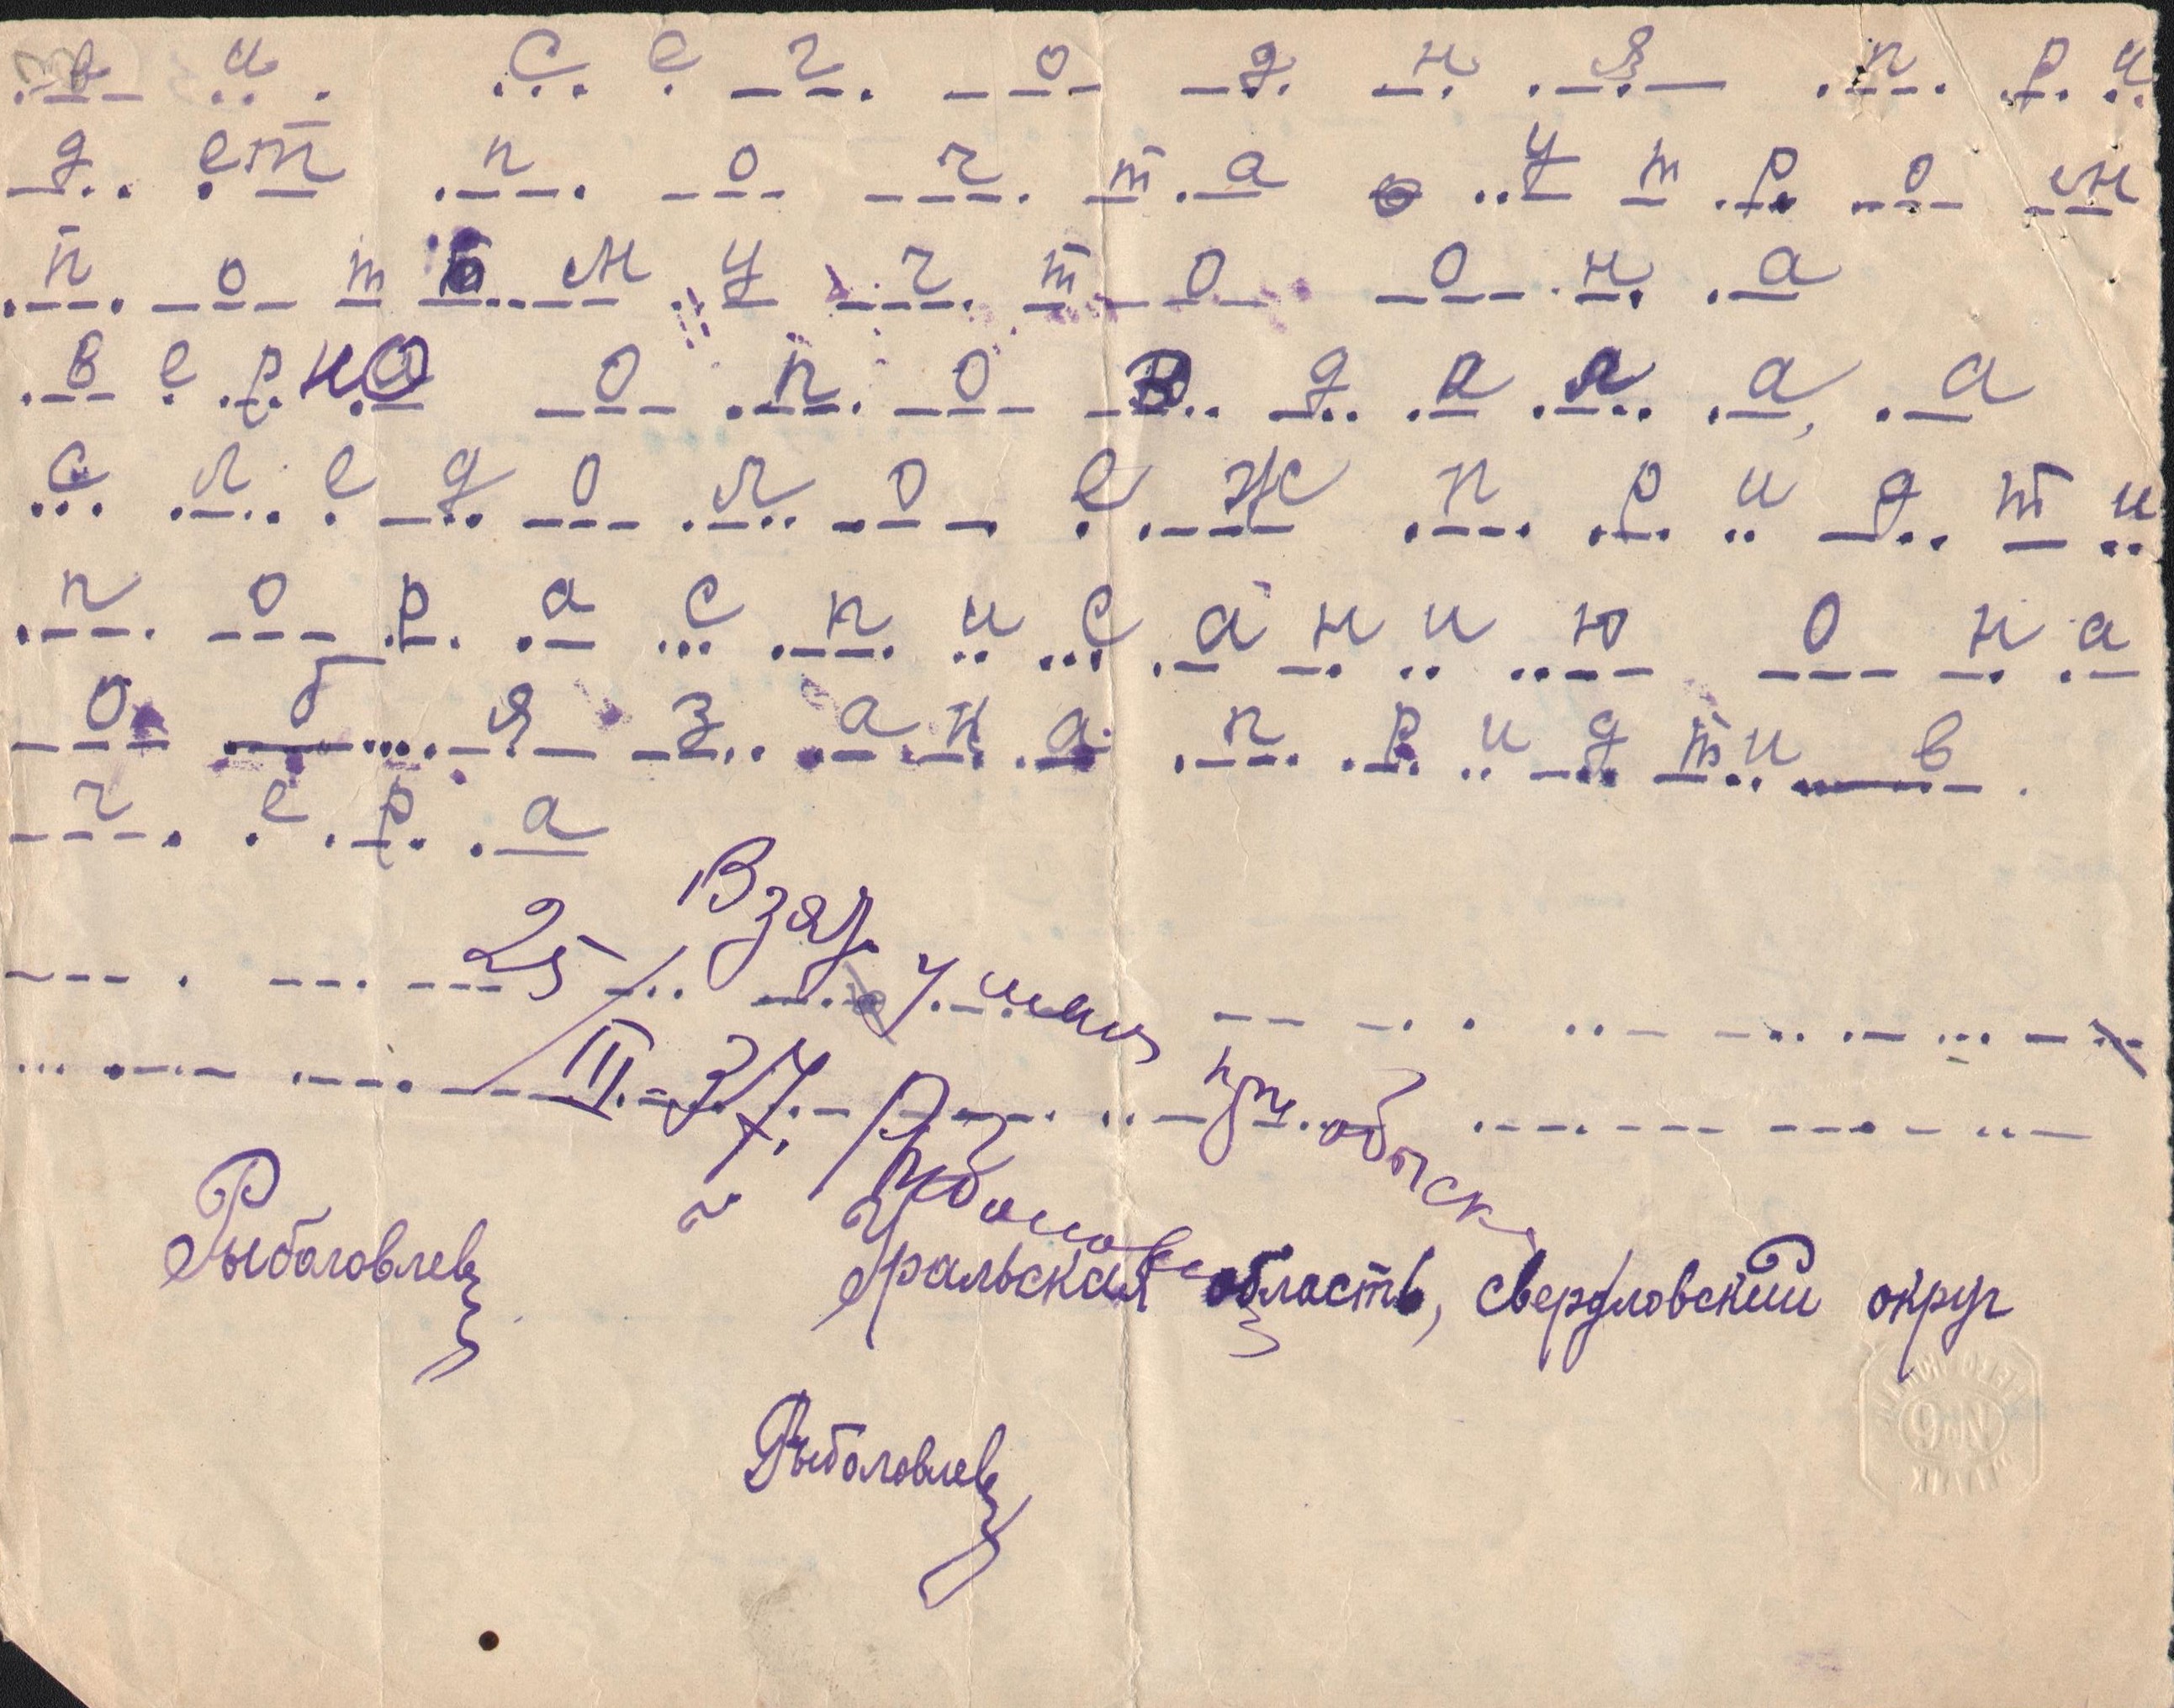 ви. Сегодня при
дет почта утром
потому что она
верно оповдала, а
следолоеж придти
по расписанию она
обязана придти в
чера
Взят у меня при обыске
25/III-37.
Рыболовлев
Уральская область, свердловский округ
Рыболовлев
№6